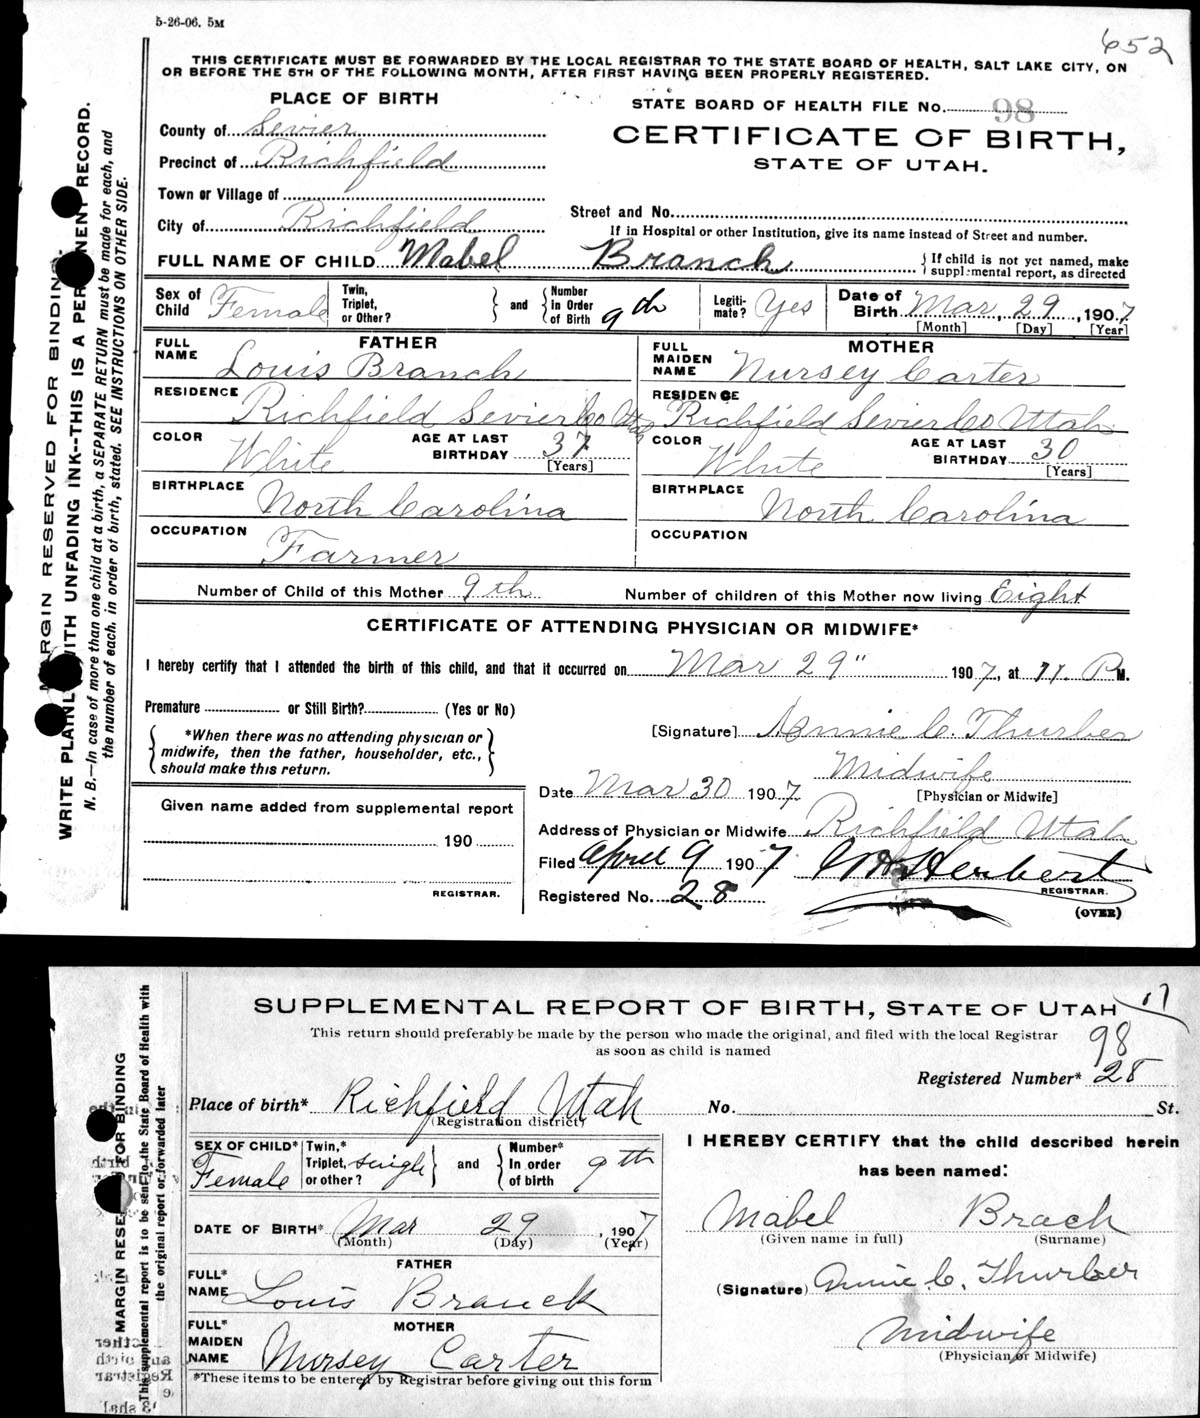 5-26-06. 5M
652
THIS CERTIFICATE MUST BE FORWARDED BY THE LOCAL REGISTRAR TO THE STATE BOARD OF HEALTH, SALT LAKE CITY, ON
OR BEFORE THE 5TH OF THE FOLLOWING MONTH, AFTER FIRST HAVING BEEN PROPERLY REGISTERED.
PLACE OF BIRTH
STATE BOARD OF HEALTH FILE No. 98
County of Sevier
CERTIFICATE OF BIRTH,
Precinct of Richfield
STATE OF UTAH.
Town or Village of
Street and No.
City of Richfield
If in Hospital or other Institution, give its name instead of Street and number.
FULL NAME OF CHILD Mabel Branch { If child is not yet named, make
supplemental report, as directed
Sex of Child Female
Twin, Triplet, or Other? } and { Number in Order of Birth 9th
Legitimate? Yes
Date of Birth Mar, 29, 1907
[Month] [Day] [Year]
FATHER
FULL NAME Louis Branch
RESIDENCE Richfield Sevier Co Utah
COLOR White AGE AT LAST BIRTHDAY 37 [Years]
BIRTHPLACE North Carolina
OCCUPATION Farmer
MOTHER
FULL MAIDEN NAME Nursey Carter
RESIDENCE Richfield Sevier Co Utah
COLOR White AGE AT LAST BIRTHDAY 30 [Years]
BIRTHPLACE North Carolina
OCCUPATION
Number of Child of this Mother 9th Number of children of this Mother now living Eight
CERTIFICATE OF ATTENDING PHYSICIAN OR MIDWIFE*
I hereby certify that I attended the birth of this child, and that it occurred on Mar 29" 1907, at 11. P M.
Premature or Still Birth? (Yes or No)
{ *When there was no attending physician or
midwife, then the father, householder, etc.,
should make this return. }
[Signature] Annie C. Thurber
Midwife
[Physician or Midwife]
Date Mar 30 1907
Address of Physician or Midwife Richfield Utah
Given name added from supplemental report
190
REGISTRAR.
Filed April 9 1907 Herbert
REGISTRAR.
Registered No. 28
(OVER)
MARGIN RESERVED FOR BINDING.
WRITE PLAINLY WITH UNFADING INK--THIS IS A PERMANENT RECORD.
N. B.—In case of more than one child at birth, a SEPARATE RETURN must be made for each, and
the number of each, in order of birth, stated. SEE INSTRUCTIONS ON OTHER SIDE.
SUPPLEMENTAL REPORT OF BIRTH, STATE OF UTAH
This return should preferably be made by the person who made the original, and filed with the local Registrar
as soon as child is named
98
Registered Number* 28
Place of birth* Richfield Utah No. St.
(Registration district)
SEX OF CHILD* Female
Twin,* Triplet, or other? single } and { Number* In order of birth 9th
DATE OF BIRTH* Mar 29, 1907
(Month) (Day) (Year)
FATHER
FULL* NAME Louis Branch
MOTHER
FULL* MAIDEN NAME Nursey Carter
*These items to be entered by Registrar before giving out this form
I HEREBY CERTIFY that the child described herein
has been named:
Mabel Brach
(Given name in full) (Surname)
(Signature) Annie C. Thurber
Midwife
(Physician or Midwife)
MARGIN RESERVED FOR BINDING
This supplemental report is to be sent to the State Board of Health with
the original report or forwarded later